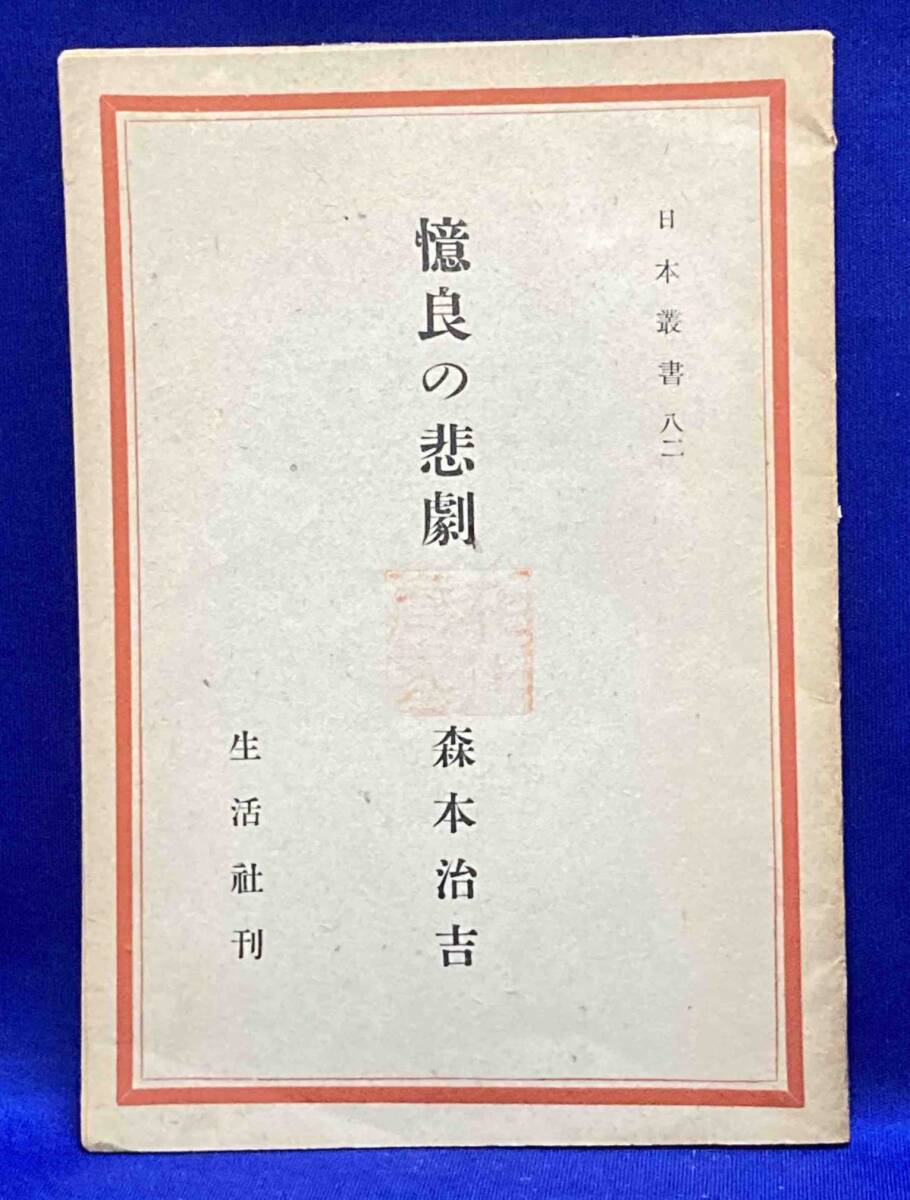 日本叢書 八二
憶良の悲劇
森本治吉
生活社刊